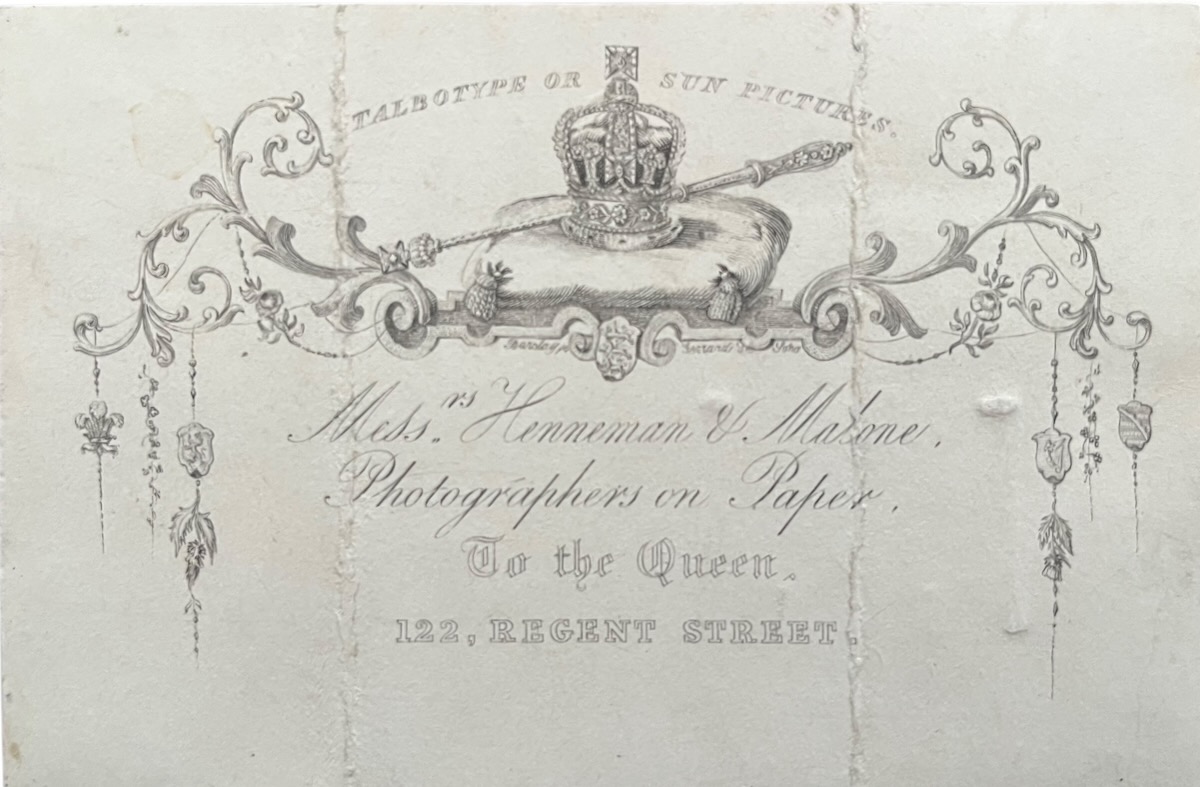 TALBOTYPE OR SUN PICTURES.
Messrs Henneman & Malone,
Photographers on Paper,
To the Queen.
122, REGENT STREET.